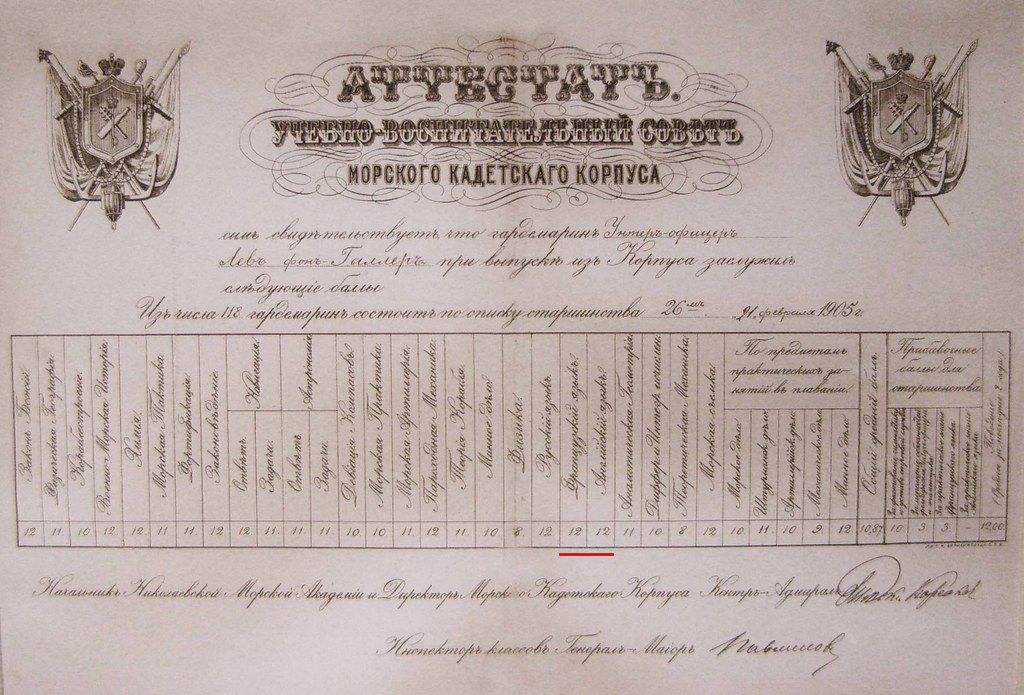 АТТЕСТАТЪ.
УЧЕБНО-ВОСПИТАТЕЛЬНЫЙ СОВѢТЪ
МОРСКОГО КАДЕТСКАГО КОРПУСА
симъ свидѣтельствуетъ что гардемаринъ Унтеръ-офицеръ
Левъ фонъ-Галлеръ при выпускѣ изъ Корпуса заслужилъ
слѣдующіе баллы
Изъ числа 113 гардемаринъ состоитъ по списку старшинства 26мъ 21 февраля 1905 г.
Законъ Божій.
Физическая Географія.
Кораблестроеніе.
Военно-Морская Исторія.
Химія.
Морская Тактика.
Фортификація.
Законовѣдѣніе.
Навигація
Отвѣтъ.
Задачи.
Астрономія
Отвѣтъ
Задачи
Девіація Компасовъ
Морская Практика.
Морская Артиллерія.
Пароходная Механика.
Теорія Корабля.
Минное дѣло
Физика.
Русскій языкъ.
Французскій языкъ.
Англійскій языкъ.
Аналитическая Геометрія.
Диффер. и Интегр. исчислен.
Теоретическая Механика.
Морская съемка
По предметамъ
практическихъ за-
нятій въ плаваніи.
Морское дѣло
Штурманск. дѣло
Артиллерійск. дѣло
Механическое дѣло
Минное дѣло
Общій средній баллъ.
Прибавочные
баллы для
старшинства
12. 11. 10. 12. 12. 11. 11. 12. 12. 11. 11. 11. 10. 10. 11. 12. 11. 10. 8. 12. 12 12 11 10. 8 12. 10. 11. 10 9. 12 10,87. 10. 3. 3. – 12,00.
Начальникъ Николаевской Морской Академіи и Директоръ Морского Кадетскаго Корпуса Контръ-Адмиралъ
Инспекторъ классовъ Генералъ-Маіоръ